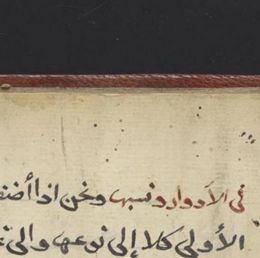 في الأدوار ونسبها ونحن اذا أضفنا
الأولى كلا إلى نوعها والى